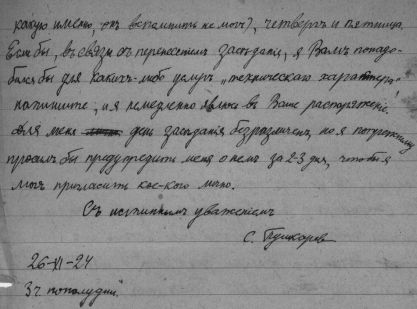 какую именно, онъ вспомнить не могъ), четвергъ и пятница.
Если бы, въ связи съ перенесеніемъ засѣданія, я Вамъ понадо-
бился бы для какихъ-либо услугъ „техническаго характера"
напишите, и я немедленно явлюсь въ Ваше распоряженіе.
Для меня день засѣданія безразличенъ, но я
просилъ бы предупредить меня о немъ за 2-3 дня, чтобы я
могъ пригласить кое-кого лично.
Съ истиннымъ уваженіемъ
С. Пушкаревъ
26-XI-24
3 ч пополудни.